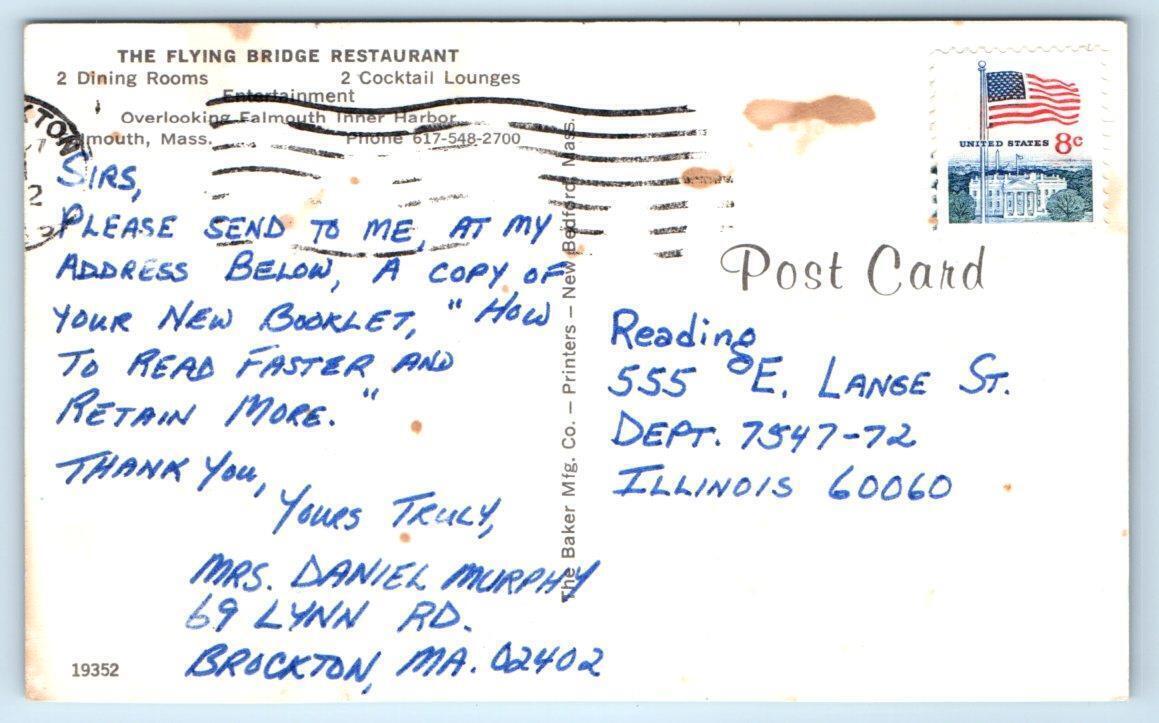 THE FLYING BRIDGE RESTAURANT
2 Dining Rooms 2 Cocktail Lounges
Entertainment
Overlooking Falmouth Inner Harbor
lmouth, Mass. Phone 617-548-2700
KTON
SIRS,
PLEASE SEND TO ME, AT MY
ADDRESS BELOW, A COPY OF
YOUR NEW BOOKLET, "HOW
TO READ FASTER AND
RETAIN MORE."
THANK YOU,
YOURS TRULY,
MRS. DANIEL MURPHY
69 LYNN RD.
BROCKTON, MA. 02402
19352
The Baker Mfg. Co. — Printers — New Bedford, Mass.
UNITED STATES 8c
Post Card
Reading
555 E. LANGE ST.
DEPT. 7547-72
ILLINOIS 60060